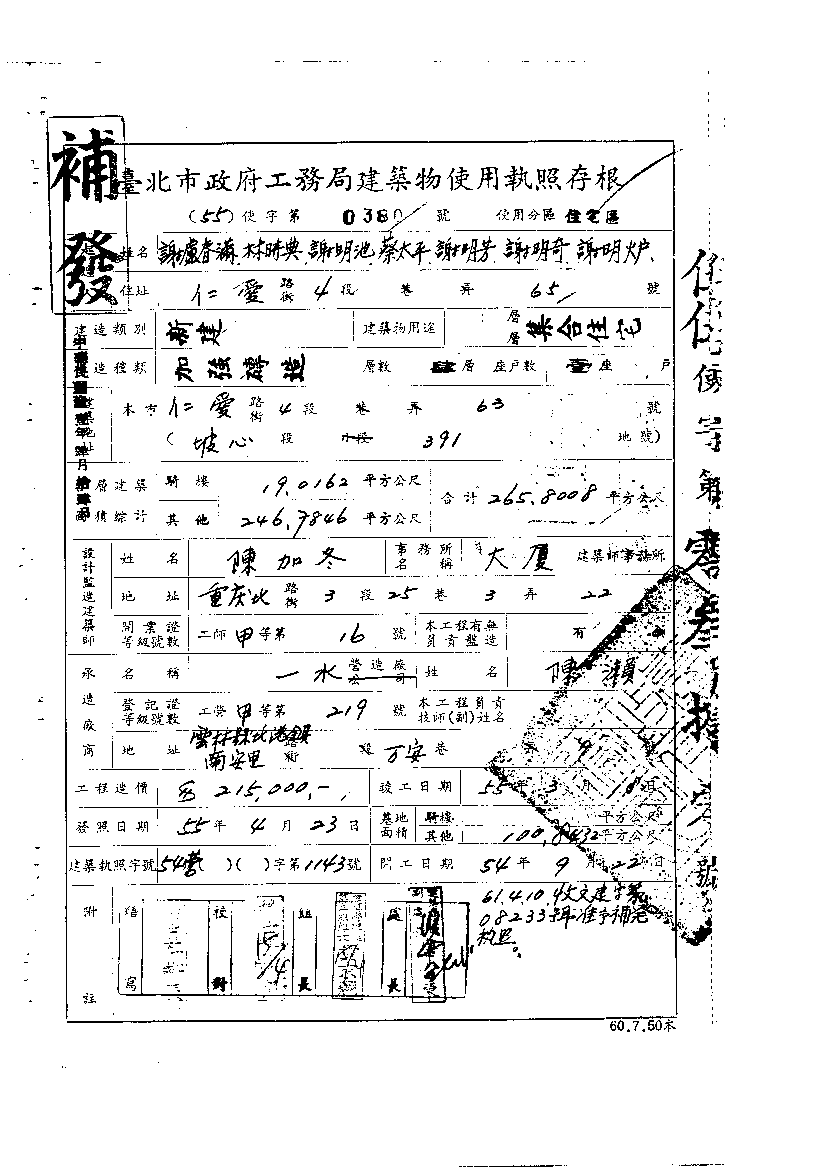 補發
臺北市政府工務局建築物使用執照存根
(55)使字第 0380 號 使用分區 住宅區
姓名 謝盧春滿 林時典 謝明池 蔡太平 謝明芳 謝明奇 謝明炉
住址 仁愛 路街 4段 巷 弄 65 號
建造類別 新建 建築物用途 層層 集合住宅
造種類 加強磚造 層數 層 座戶數 座 戶
本市 仁愛 路街 4段 巷 弄 63 號
(坡心段 小段 391 地號)
層建築 騎樓 19.0162 平方公尺 合計 265.8008 平方公尺
積綜計 其他 246.7846 平方公尺
設計監造建築師 姓名 陳加冬 事務所名稱 大廈 建築師事務所
地址 重庆北 路街 3段 25巷 3弄 22
開業證等級號數 工師甲等第 16 號 本工程有無負責監造 有
承造廠商 名稱 一水 營造廠公司 姓名 陳瀨
登記證等級號數 工營甲等第 219 號 本工程負責技師(副)姓名
地址 雲林縣北港鎮南安里 路街 段 万安巷 弄 9 號
工程造價 215,000,- 竣工日期 55年3月18日
發照日期 55年4月23日 基地面積 騎樓 平方公尺
其他 100.8432 平方公尺
建築執照字號 54營( )( )字第1143號 開工日期 54年9月22日
附註 繕寫 校對 組長 長
61.4.10.
082333
准予補発
执照。
60.7.50本
使字第零叁捌零號